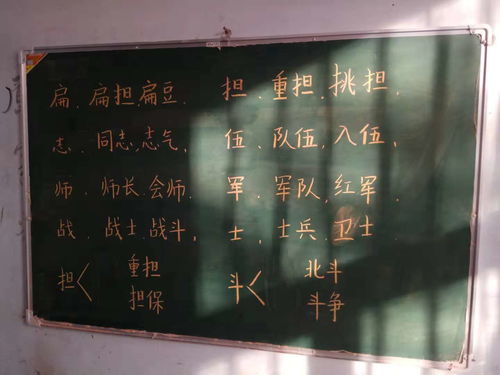 扁、扁担、扁豆、 担、重担、挑担、
志、同志、志气、 伍、队伍、入伍、
师、师长、会师、 军、军队、红军、
战、战士、战斗、 士、士兵、卫士、
担< 重担 担保
斗< 北斗 斗争